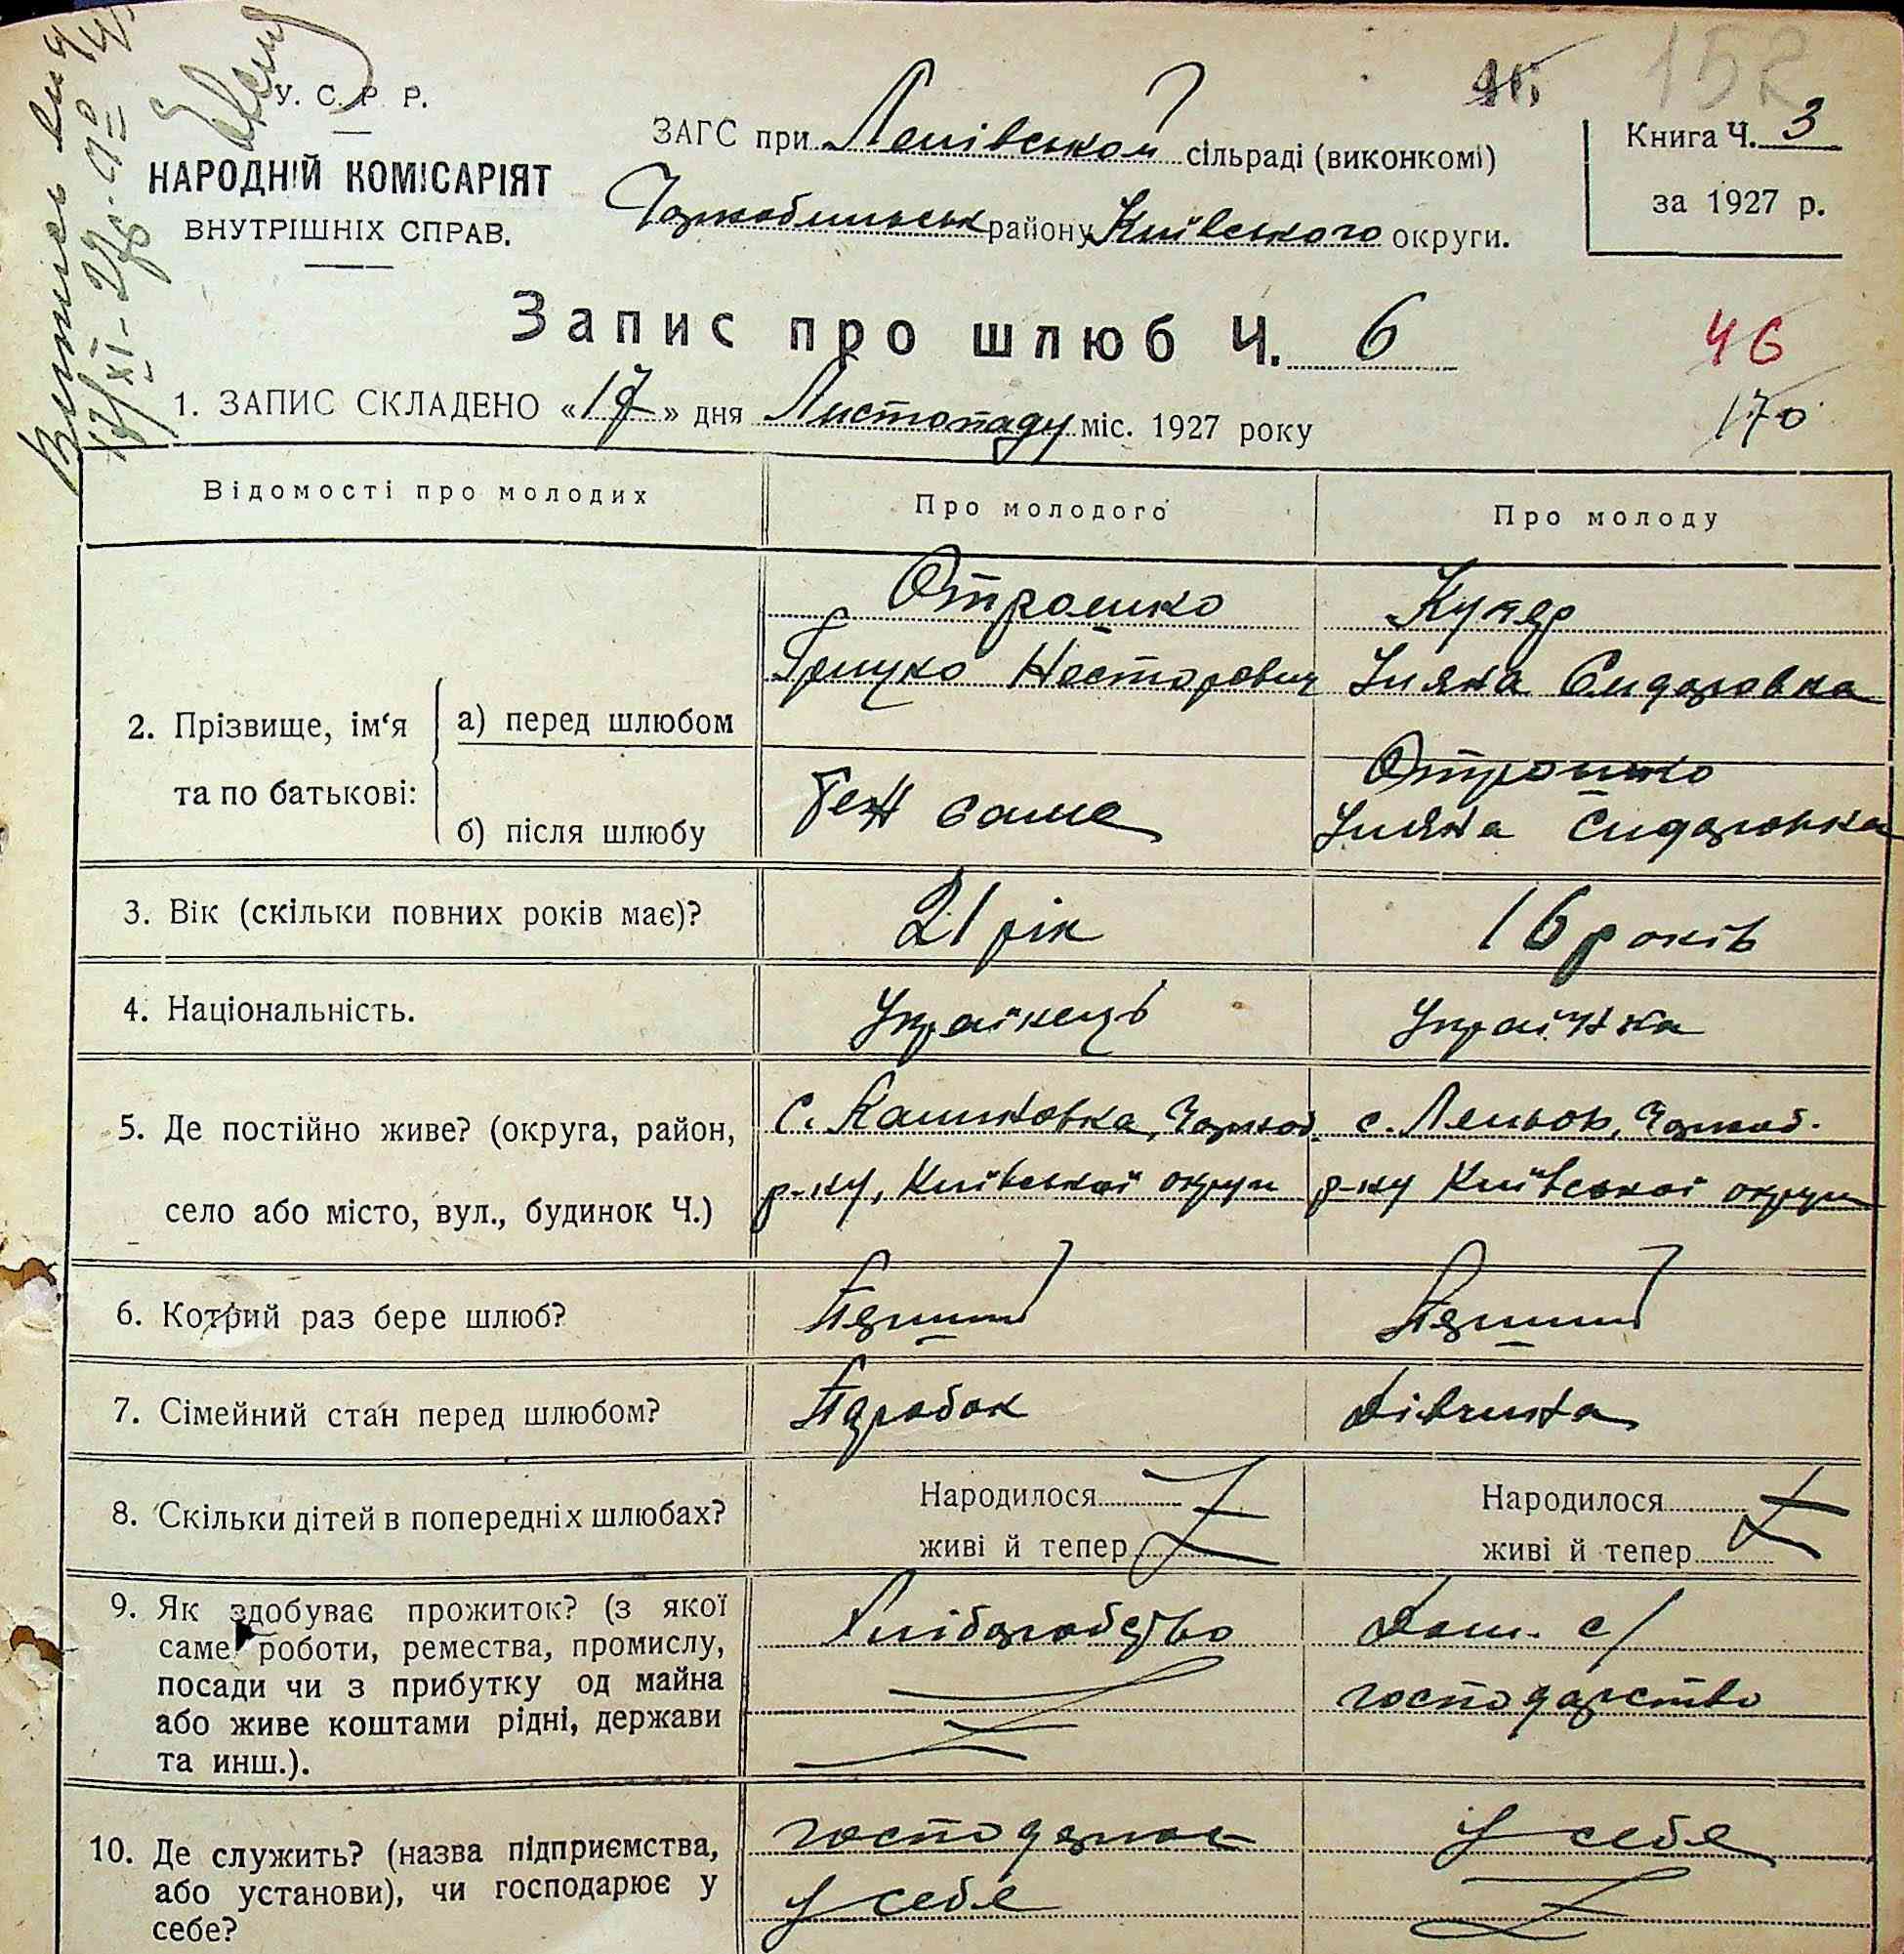 152
У. С. Р. Р.
НАРОДНІЙ КОМІСАРІЯТ
ВНУТРІШНІХ СПРАВ.
ЗАГС при Лельівської сільраді (виконкомі)
Чорнобильськ району Київського округи.
Книга Ч. 3
за 1927 р.
Запис про шлюб Ч. 6
46
170
1. ЗАПИС СКЛАДЕНО «17» дня Листопаду міс. 1927 року
Відомості про молодих
Про молодого
Про молоду
2. Прізвище, ім‘я та по батькові:
а) перед шлюбом
Отрошко
Грицко Несторович
Куляр
Уляна Сидоровна
б) після шлюбу
Теж саме
Отрошко
Уляна Сидоровна
3. Вік (скільки повних років має)?
21 рік
16 років
4. Національність.
Українець
Українка
5. Де постійно живе? (округа, район,
село або місто, вул., будинок Ч.)
с. Чорноб.
р-ну, Київської округи
с. Лельов, Чорноб.
р-ну Київської округи
6. Котрий раз бере шлюб?
Перший
Перший
7. Сімейний стан перед шлюбом?
Паробок
Дівчина
8. Скільки дітей в попередніх шлюбах?
Народилося
живі й тепер
Народилося
живі й тепер
9. Як здобуває прожиток? (з якої
саме роботи, ремества, промислу,
посади чи з прибутку од майна
або живе коштами рідні, держави
та инш.).
Хліборобство
Дом. с/
господарство
10. Де служить? (назва підприємства,
або установи), чи господарює у
себе?
господарює
у себе
у себе